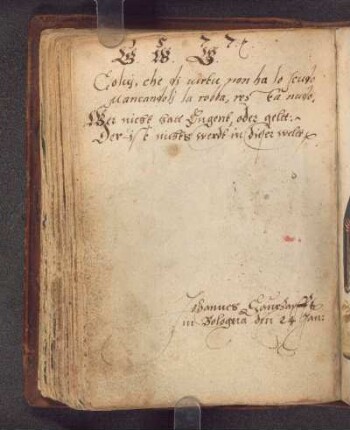 15 77
W W W
Coluj, che di virtu non ha lo scudo
Mancandoli la robba, resta nudo.
Wer nicht hatt Tugent, oder gelt.
Der ist nichts werdt in diser welt.
Johannes
in Bologna den 24 Jan: